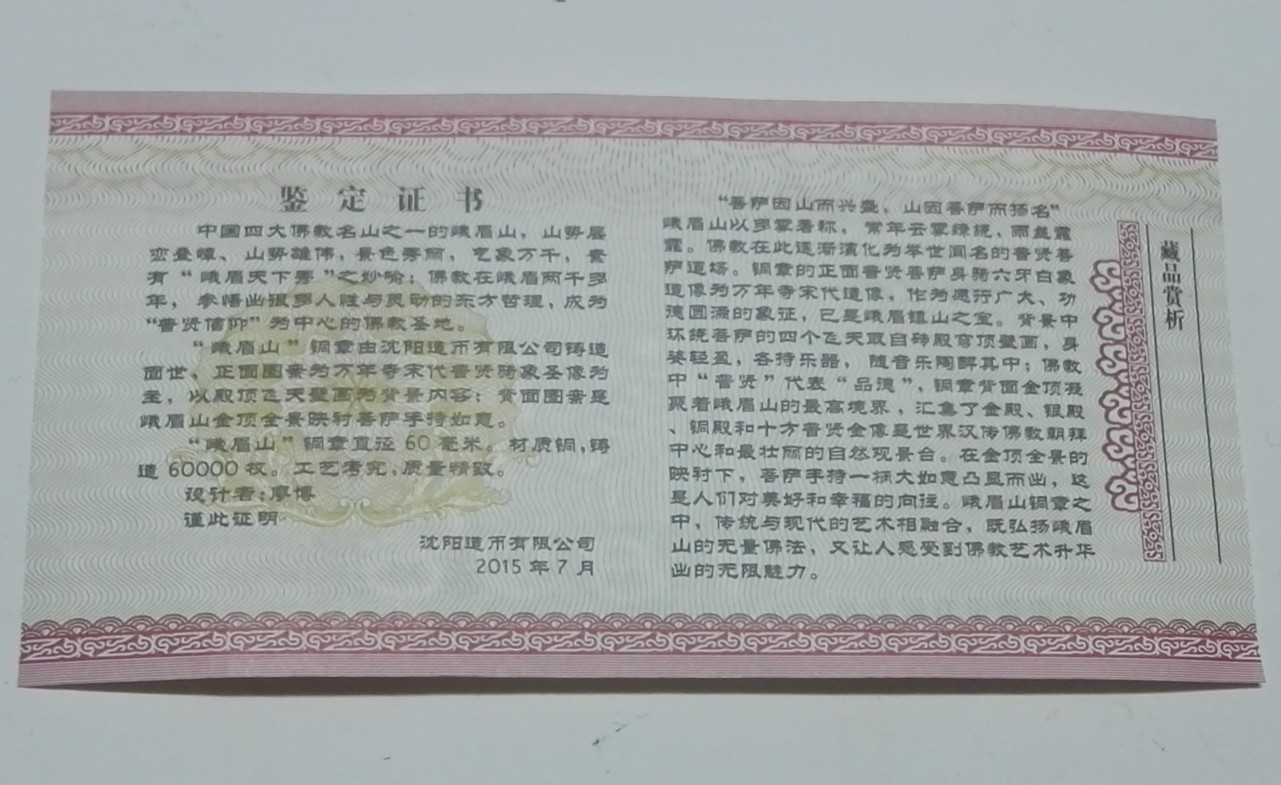 鉴定证书
中国四大佛教名山之一的峨眉山，山势层
峦叠嶂、山势雄伟，景色秀丽，气象万千，素
有“峨眉天下秀”之妙喻；佛教在峨眉两千多
年，参悟出很多人性与灵动的东方哲理，成为
“普贤信仰”为中心的佛教圣地。
“峨眉山”铜章由沈阳造币有限公司铸造
面世，正面图案为万年寺宋代普贤骑象圣像为
主，以殿顶飞天壁画为背景内容；背面图案是
峨眉山金顶全景映衬菩萨手持如意。
“峨眉山”铜章直径60毫米。材质铜，铸
造60000枚。工艺考究，质量精致。
设计者：廖博
谨此证明
沈阳造币有限公司
2015年7月
藏品赏析
“菩萨因山而兴盛，山因菩萨而扬名”
峨眉山以多雾著称，常年云雾缭绕，雨丝霏
霏。佛教在此逐渐演化为举世闻名的普贤菩
萨道场。铜章的正面普贤菩萨身骑六牙白象
造像为万年寺宋代造像，作为愿行广大、功
德圆满的象征，已是峨眉镇山之宝。背景中
环绕菩萨的四个飞天取自砖殿穹顶壁画，身
姿轻盈，各持乐器，随音乐陶醉其中；佛教
中“普贤”代表“品德”，铜章背面金顶凝
聚着峨眉山的最高境界，汇集了金殿、银殿
、铜殿和十方普贤金像是世界汉传佛教朝拜
中心和最壮丽的自然观景台。在金顶全景的
映衬下，菩萨手持一柄大如意凸显而出，这
是人们对美好和幸福的向往。峨眉山铜章之
中，传统与现代的艺术相融合，既弘扬峨眉
山的无量佛法，又让人感受到佛教艺术升华
出的无限魅力。